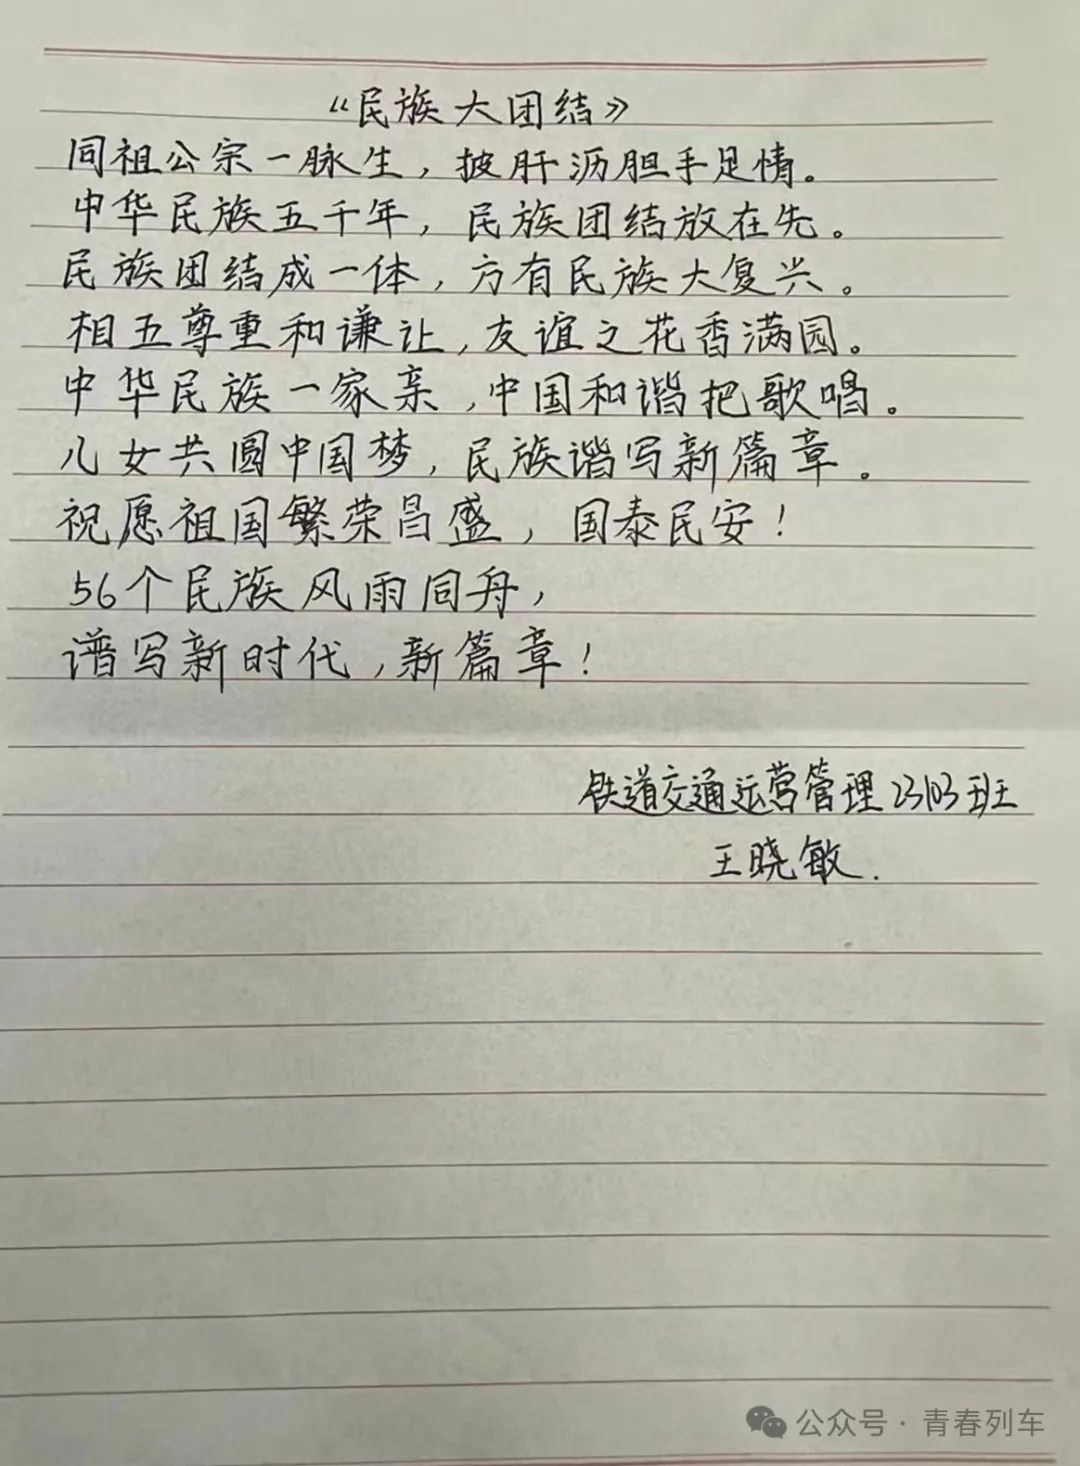 《民族大团结》
同祖公宗一脉生，披肝沥胆手足情。
中华民族五千年，民族团结放在先。
民族团结成一体，方有民族大复兴。
相互尊重和谦让，友谊之花香满园。
中华民族一家亲，中国和谐把歌唱。
儿女共圆中国梦，民族谐写新篇章。
祝愿祖国繁荣昌盛，国泰民安！
56个民族风雨同舟，
谱写新时代，新篇章！
铁道交通运营管理2303班
王晓敏.
公众号·青春列车